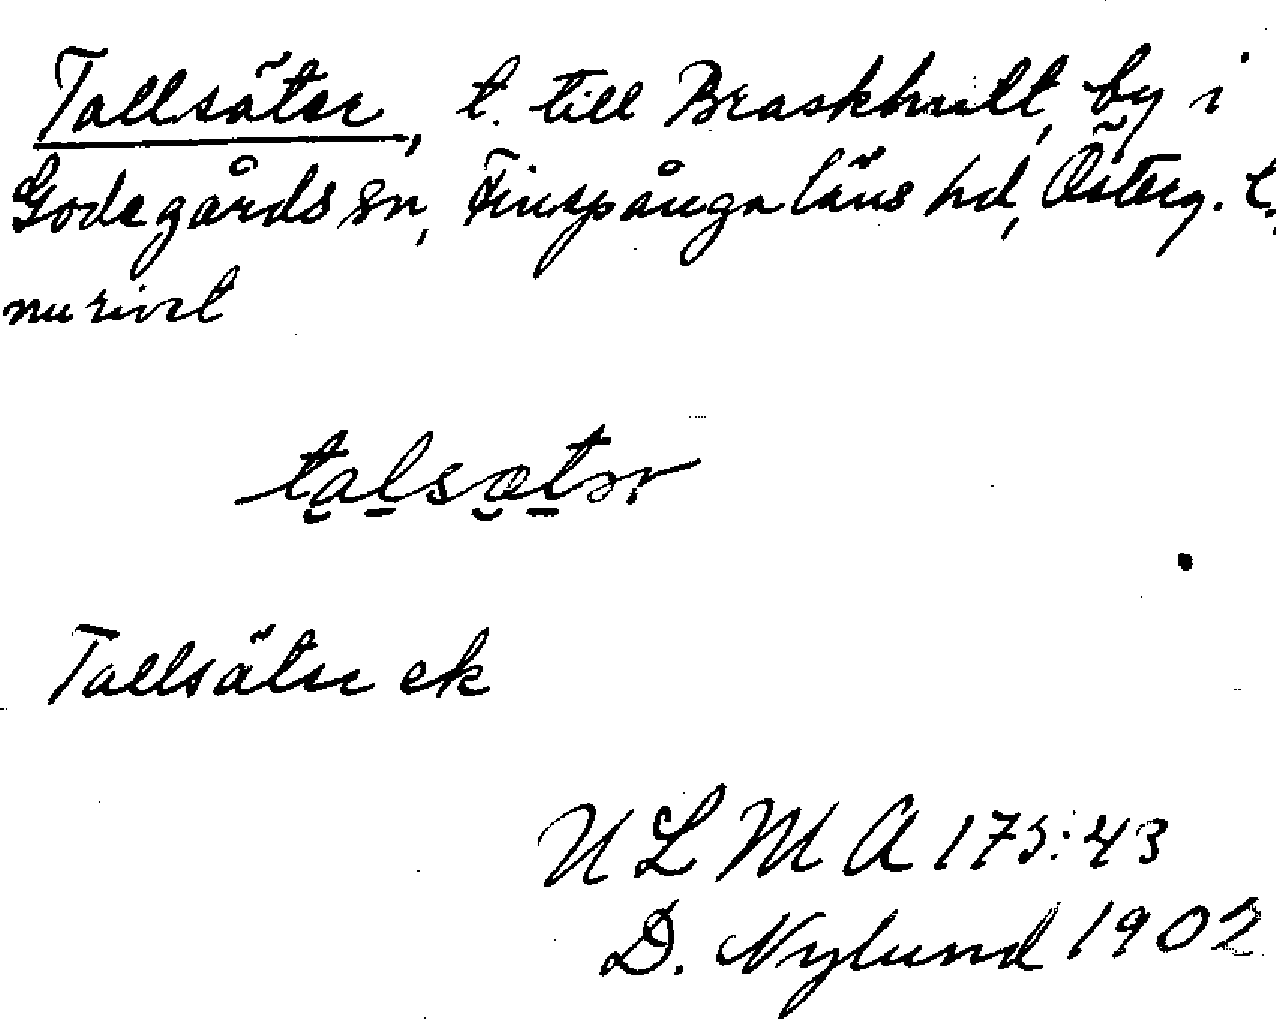 Tallsäter, t. till Braskhult, by i
Godegårds sn, Finspånga läns hd, Österg. l.
nu rivet
talsætər
Tallsäter ek
ULMA 175:43
D. Nylund 1902